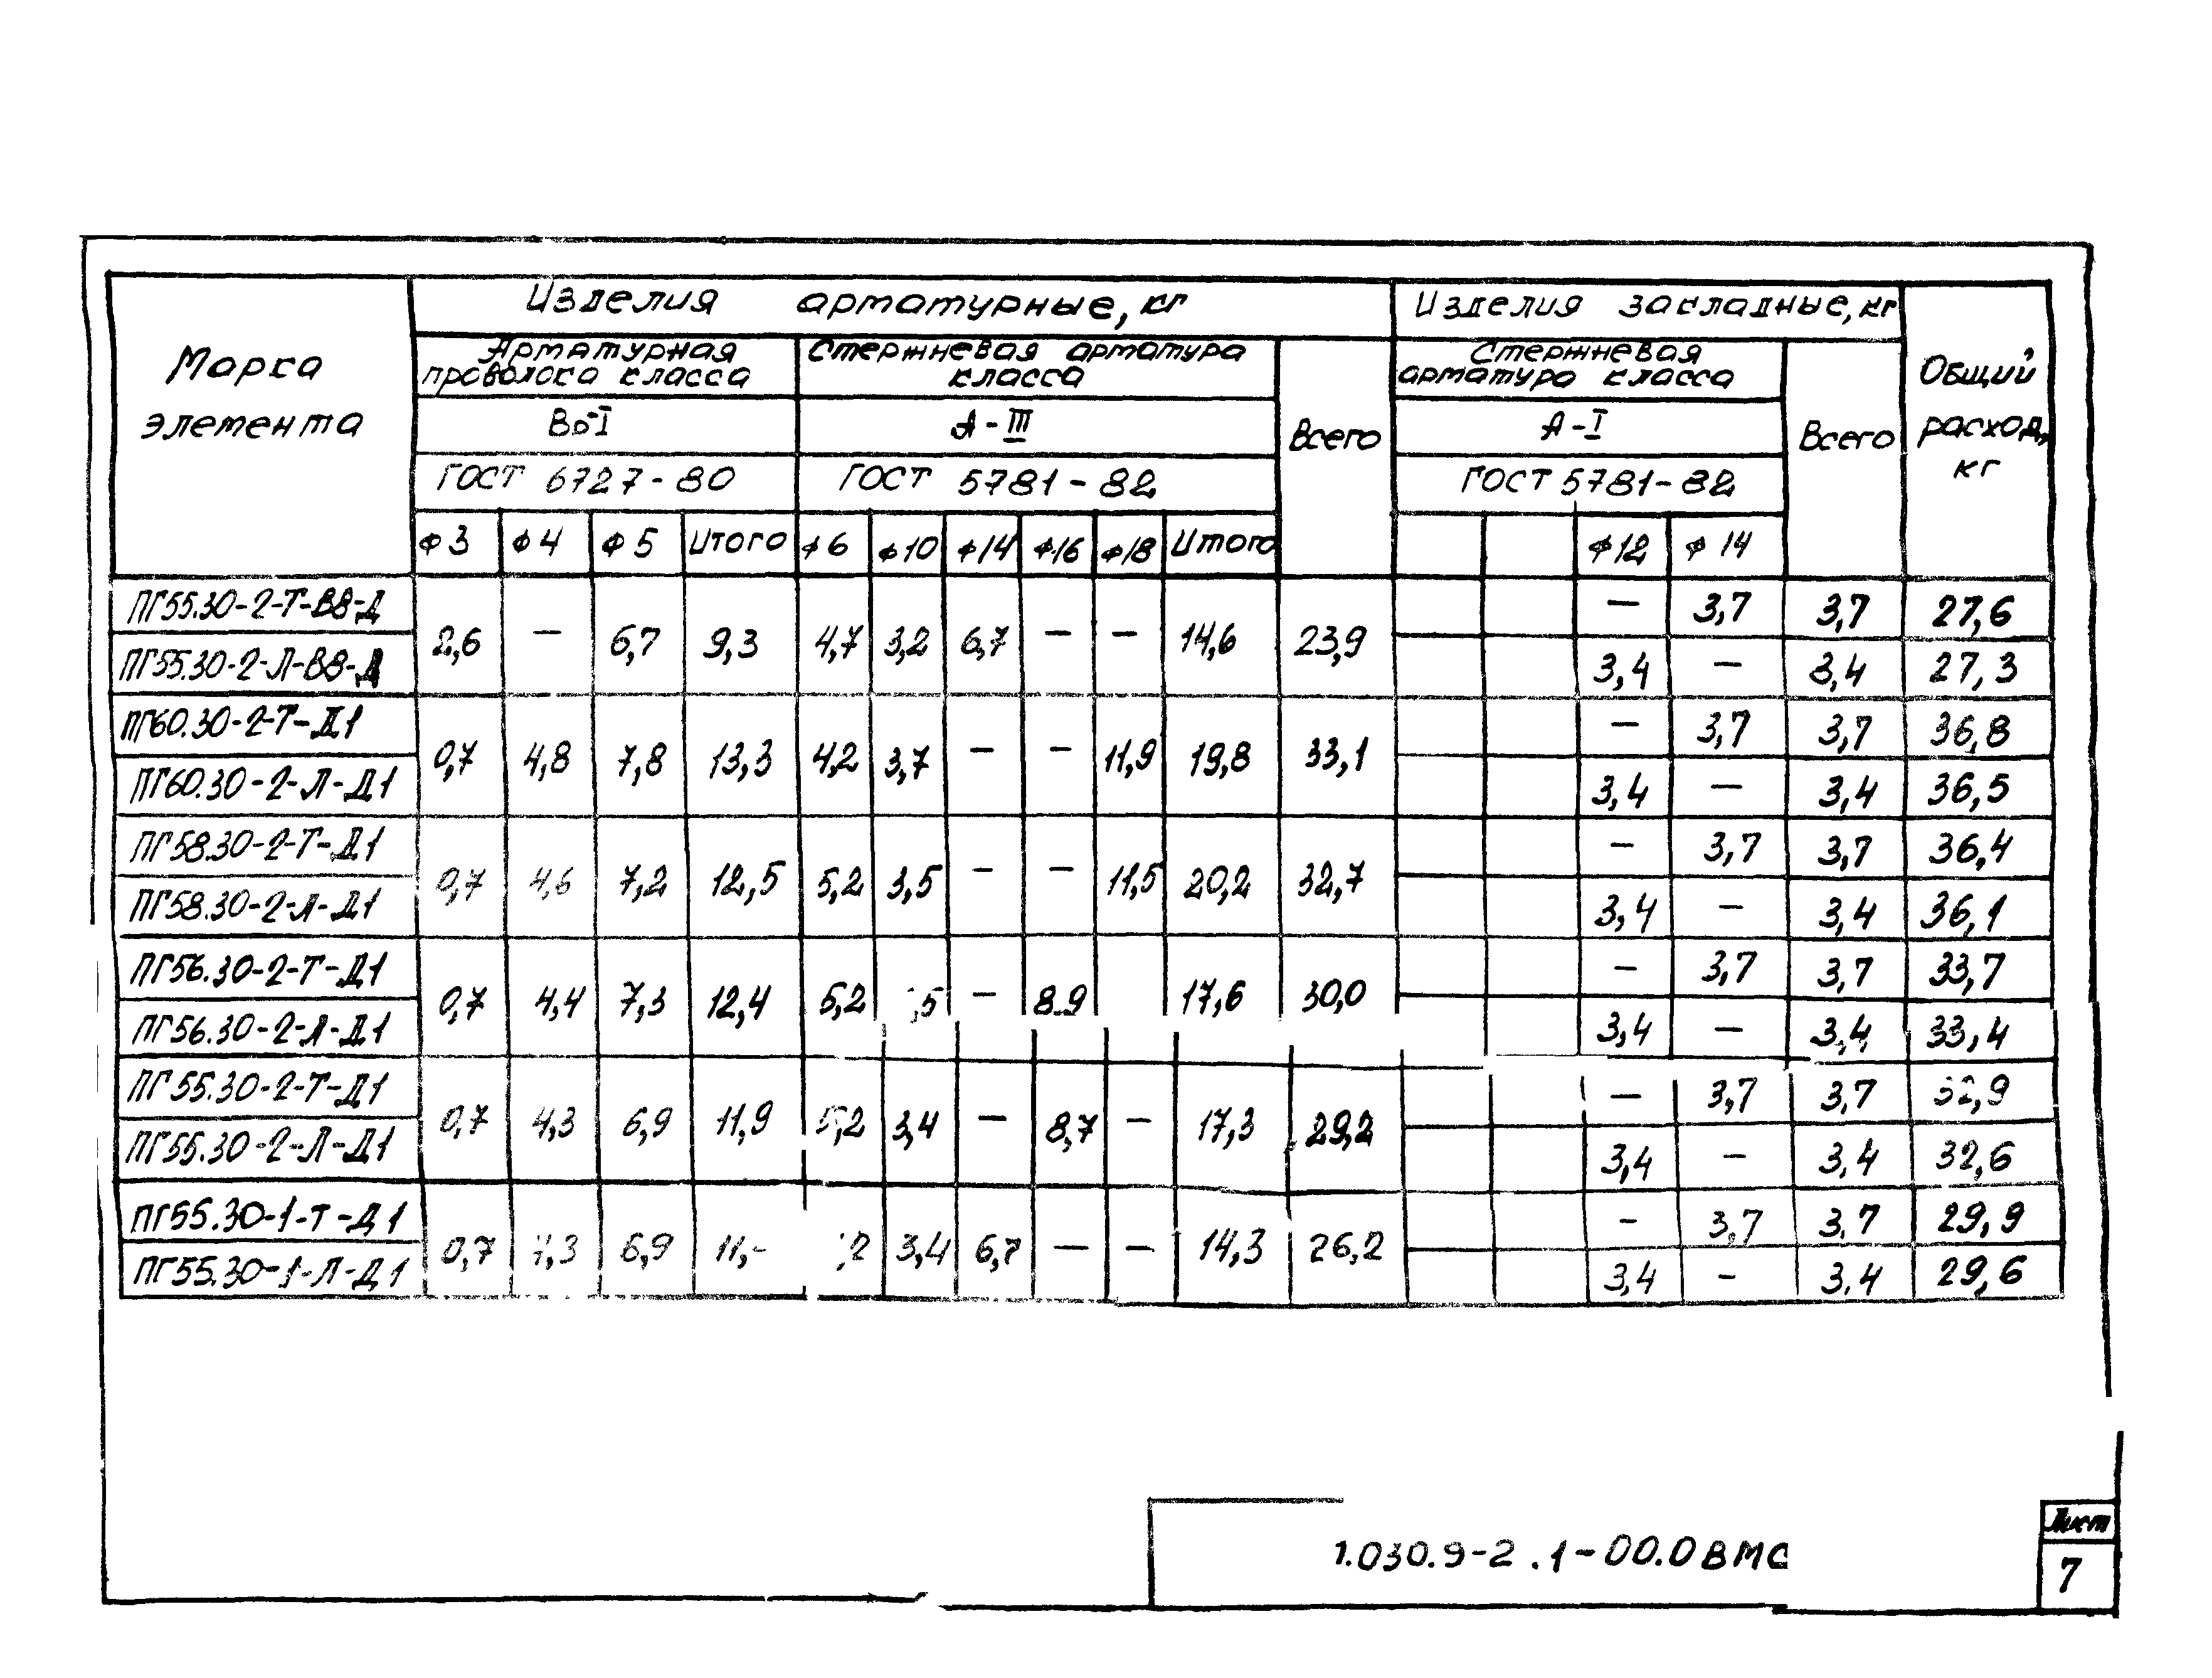 Марка элемента
Изделия арматурные, кг
Изделия закладные, кг
Общий расход, кг
Арматурная проволока класса
Стержневая арматура класса
Всего
Стержневая арматура класса
Всего
Вр-I
А-III
А-I
ГОСТ 6727-80
ГОСТ 5781-82
ГОСТ 5781-82
ф3 ф4 ф5 Итого ф6 ф10 ф14 ф16 ф18 Итого ф12 ф14
ПГ55.30-2-Т-В8-Д — 3,7 3,7 27,6
2,6 — 6,7 9,3 4,7 3,2 6,7 — — 14,6 23,9
ПГ55.30-2-Л-В8-Д 3,4 — 3,4 27,3
ПГ60.30-2-Т-Д1 — 3,7 3,7 36,8
0,7 4,8 7,8 13,3 4,2 3,7 — — 11,9 19,8 33,1
ПГ60.30-2-Л-Д1 3,4 — 3,4 36,5
ПГ58.30-2-Т-Д1 — 3,7 3,7 36,4
0,7 4,6 7,2 12,5 5,2 3,5 — — 11,5 20,2 32,7
ПГ58.30-2-Л-Д1 3,4 — 3,4 36,1
ПГ56.30-2-Т-Д1 — 3,7 3,7 33,7
0,7 4,4 7,3 12,4 5,2 ,5 — 8.9 17,6 30,0
ПГ56.30-2-Л-Д1 3,4 — 3,4 33,4
ПГ55.30-2-Т-Д1 — 3,7 3,7 32,9
0,7 4,3 6,9 11,9 5,2 3,4 — 8,7 — 17,3 29,2
ПГ55.30-2-Л-Д1 3,4 — 3,4 32,6
ПГ55.30-1-Т-Д1 — 3,7 3,7 29,9
0,7 6,9 3,4 6,7 — — 14,3 26,2
ПГ55.30-1-Л-Д1 3,4 — 3.4 29,6
1.030.9-2.1-00.0ВМС
Лист
7